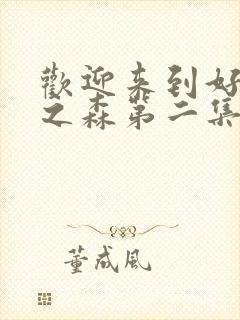 歡迎来到好
之森第二集
董成風